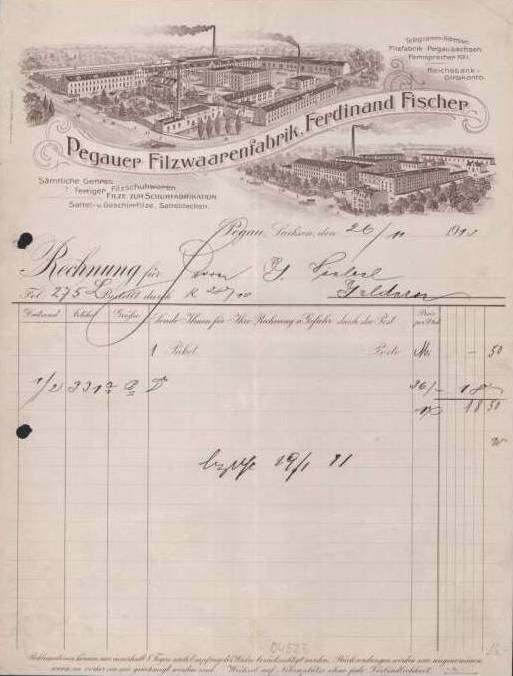 Telegramm-Adresse:
Filzfabrik Pegausachsen
Fernsprecher
Reichsbank-
Girokonto.
Pegauer Filzwaarenfabrik, Ferdinand Fischer
Sämtliche Genres
fertiger Filzschuhwaren
FILZE ZUR SCHUHFABRIKATION
Sattel- u. Geschirrfilze, Satteldecken.
Pegau, Sachsen, den 26/11
Rechnung für Herrn
Fol. 275 Bestellt durch
Dutzend Artikel Größe Sende Ihnen für Ihre Rechnung u. Gefahr durch die Post Preis
1 Paket Porto M. – 50
1/2 331 36/– 18
18 50
19/1 11
04523
Reklamationen können nur innerhalb 8 Tagen nach Empfang der Waare berücksichtigt werden. Rücksendungen werden nur angenommen
wenn sie vorher von mir genehmigt worden sind. Wechsel auf Nebenplätze ohne jede Verbindlichkeit.